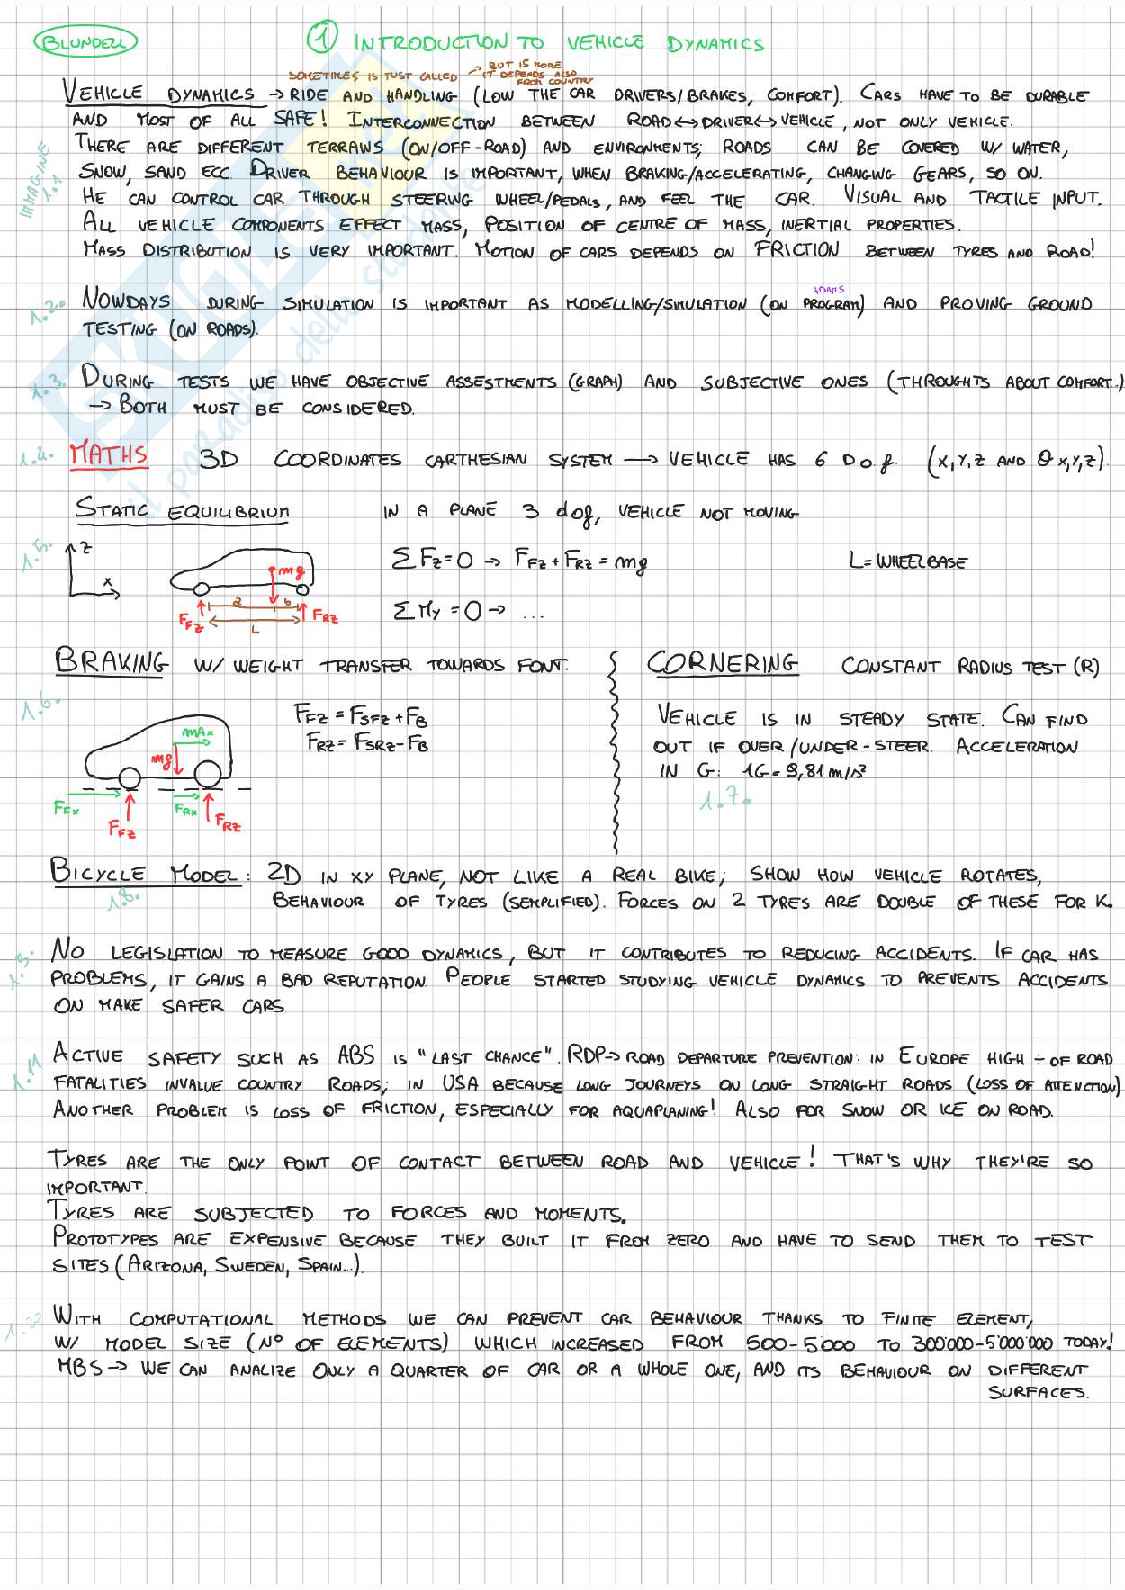 BLUNDELL
① INTRODUCTION TO VEHICLE DYNAMICS
SOMETIMES IS JUST CALLED → BUT IS MORE
IT DEPENDS ALSO
FROM COUNTRY
VEHICLE DYNAMICS → RIDE AND HANDLING (LOW THE CAR DRIVERS/BRAKES, COMFORT). CARS HAVE TO BE DURABLE
AND MOST OF ALL SAFE! INTERCONNECTION BETWEEN ROAD ↔ DRIVER ↔ VEHICLE, NOT ONLY VEHICLE.
THERE ARE DIFFERENT TERRAINS (ON/OFF-ROAD) AND ENVIRONMENTS; ROADS CAN BE COVERED W/ WATER,
IMMAGINE 1.1
SNOW, SAND ECC DRIVER BEHAVIOUR IS IMPORTANT, WHEN BRAKING/ACCELERATING, CHANGING GEARS, SO ON.
HE CAN CONTROL CAR THROUGH STEERING WHEEL/PEDALS, AND FEEL THE CAR. VISUAL AND TACTILE INPUT.
ALL VEHICLE COMPONENTS EFFECT MASS, POSITION OF CENTRE OF MASS, INERTIAL PROPERTIES.
MASS DISTRIBUTION IS VERY IMPORTANT. MOTION OF CARS DEPENDS ON FRICTION BETWEEN TYRES AND ROAD!
ADAMS
1.2. NOWDAYS DURING SIMULATION IS IMPORTANT AS MODELLING/SIMULATION (ON PROGRAM) AND PROVING GROUND
TESTING (ON ROADS).
1.3. DURING TESTS WE HAVE OBJECTIVE ASSESTMENTS (GRAPH) AND SUBJECTIVE ONES (THROUGHTS ABOUT COMFORT..)
→ BOTH MUST BE CONSIDERED.
1.4. MATHS 3D COORDINATES CARTHESIAN SYSTEM → VEHICLE HAS 6 D.o.f. (X,Y,Z AND θ X,Y,Z).
STATIC EQUILIBRIUM IN A PLANE 3 dof, VEHICLE NOT MOVING
1.5.
Z
X
mg
a
b
L
F_FZ
F_RZ
ΣF_Z=0 → F_FZ+F_RZ=mg L=WHEELBASE
ΣM_Y=0 → ...
BRAKING W/ WEIGHT TRANSFER TOWARDS FONT.
1.6.
F_FZ=F_SFZ+F_B
F_RZ=F_SRZ-F_B
mAx
mg
F_Fx
F_Rx
F_FZ
F_RZ
CORNERING CONSTANT RADIUS TEST (R)
VEHICLE IS IN STEADY STATE. CAN FIND
OUT IF OVER/UNDER-STEER. ACCELERATION
IN G: 1G=9,81m/s²
1.7.
BICYCLE MODEL: 2D IN XY PLANE, NOT LIKE A REAL BIKE; SHOW HOW VEHICLE ROTATES,
1.8. BEHAVIOUR OF TYRES (SEMPLIFIED). FORCES ON 2 TYRES ARE DOUBLE OF THESE FOR K.
1.9. NO LEGISLATION TO MEASURE GOOD DYNAMICS, BUT IT CONTRIBUTES TO REDUCING ACCIDENTS. IF CAR HAS
PROBLEMS, IT GAINS A BAD REPUTATION PEOPLE STARTED STUDYING VEHICLE DYNAMICS TO PREVENTS ACCIDENTS
ON MAKE SAFER CARS
1.11 ACTIVE SAFETY SUCH AS ABS IS "LAST CHANCE". RDP → ROAD DEPARTURE PREVENTION: IN EUROPE HIGH - OF ROAD
FATALITIES INVALUE COUNTRY ROADS; IN USA BECAUSE LONG JOURNEYS ON LONG STRAIGHT ROADS (LOSS OF ATTENCTION)
ANOTHER PROBLEM IS LOSS OF FRICTION, ESPECIALLY FOR AQUAPLANING! ALSO FOR SNOW OR ICE ON ROAD.
TYRES ARE THE ONLY POINT OF CONTACT BETWEEN ROAD AND VEHICLE! THAT'S WHY THEY'RE SO
IMPORTANT.
TYRES ARE SUBJECTED TO FORCES AND MOMENTS.
PROTOTYPES ARE EXPENSIVE BECAUSE THEY BUILT IT FROM ZERO AND HAVE TO SEND THEM TO TEST
SITES (ARIZONA, SWEDEN, SPAIN..).
WITH COMPUTATIONAL METHODS WE CAN PREVENT CAR BEHAVIOUR THANKS TO FINITE ELEMENT,
W/ MODEL SIZE (N° OF ELEMENTS) WHICH INCREASED FROM 500-5'000 TO 300'000-5'000'000 TODAY!
MBS → WE CAN ANALIZE ONLY A QUARTER OF CAR OR A WHOLE ONE, AND ITS BEHAVIOUR ON DIFFERENT
SURFACES.